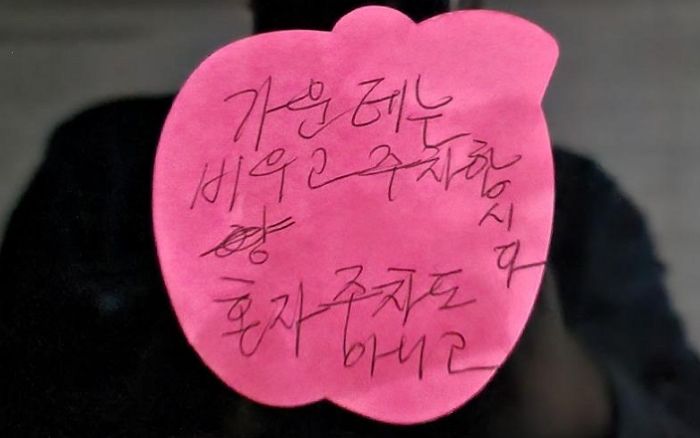 가운데는
비우고 주차합
시
다
혼자 주차도
아니고